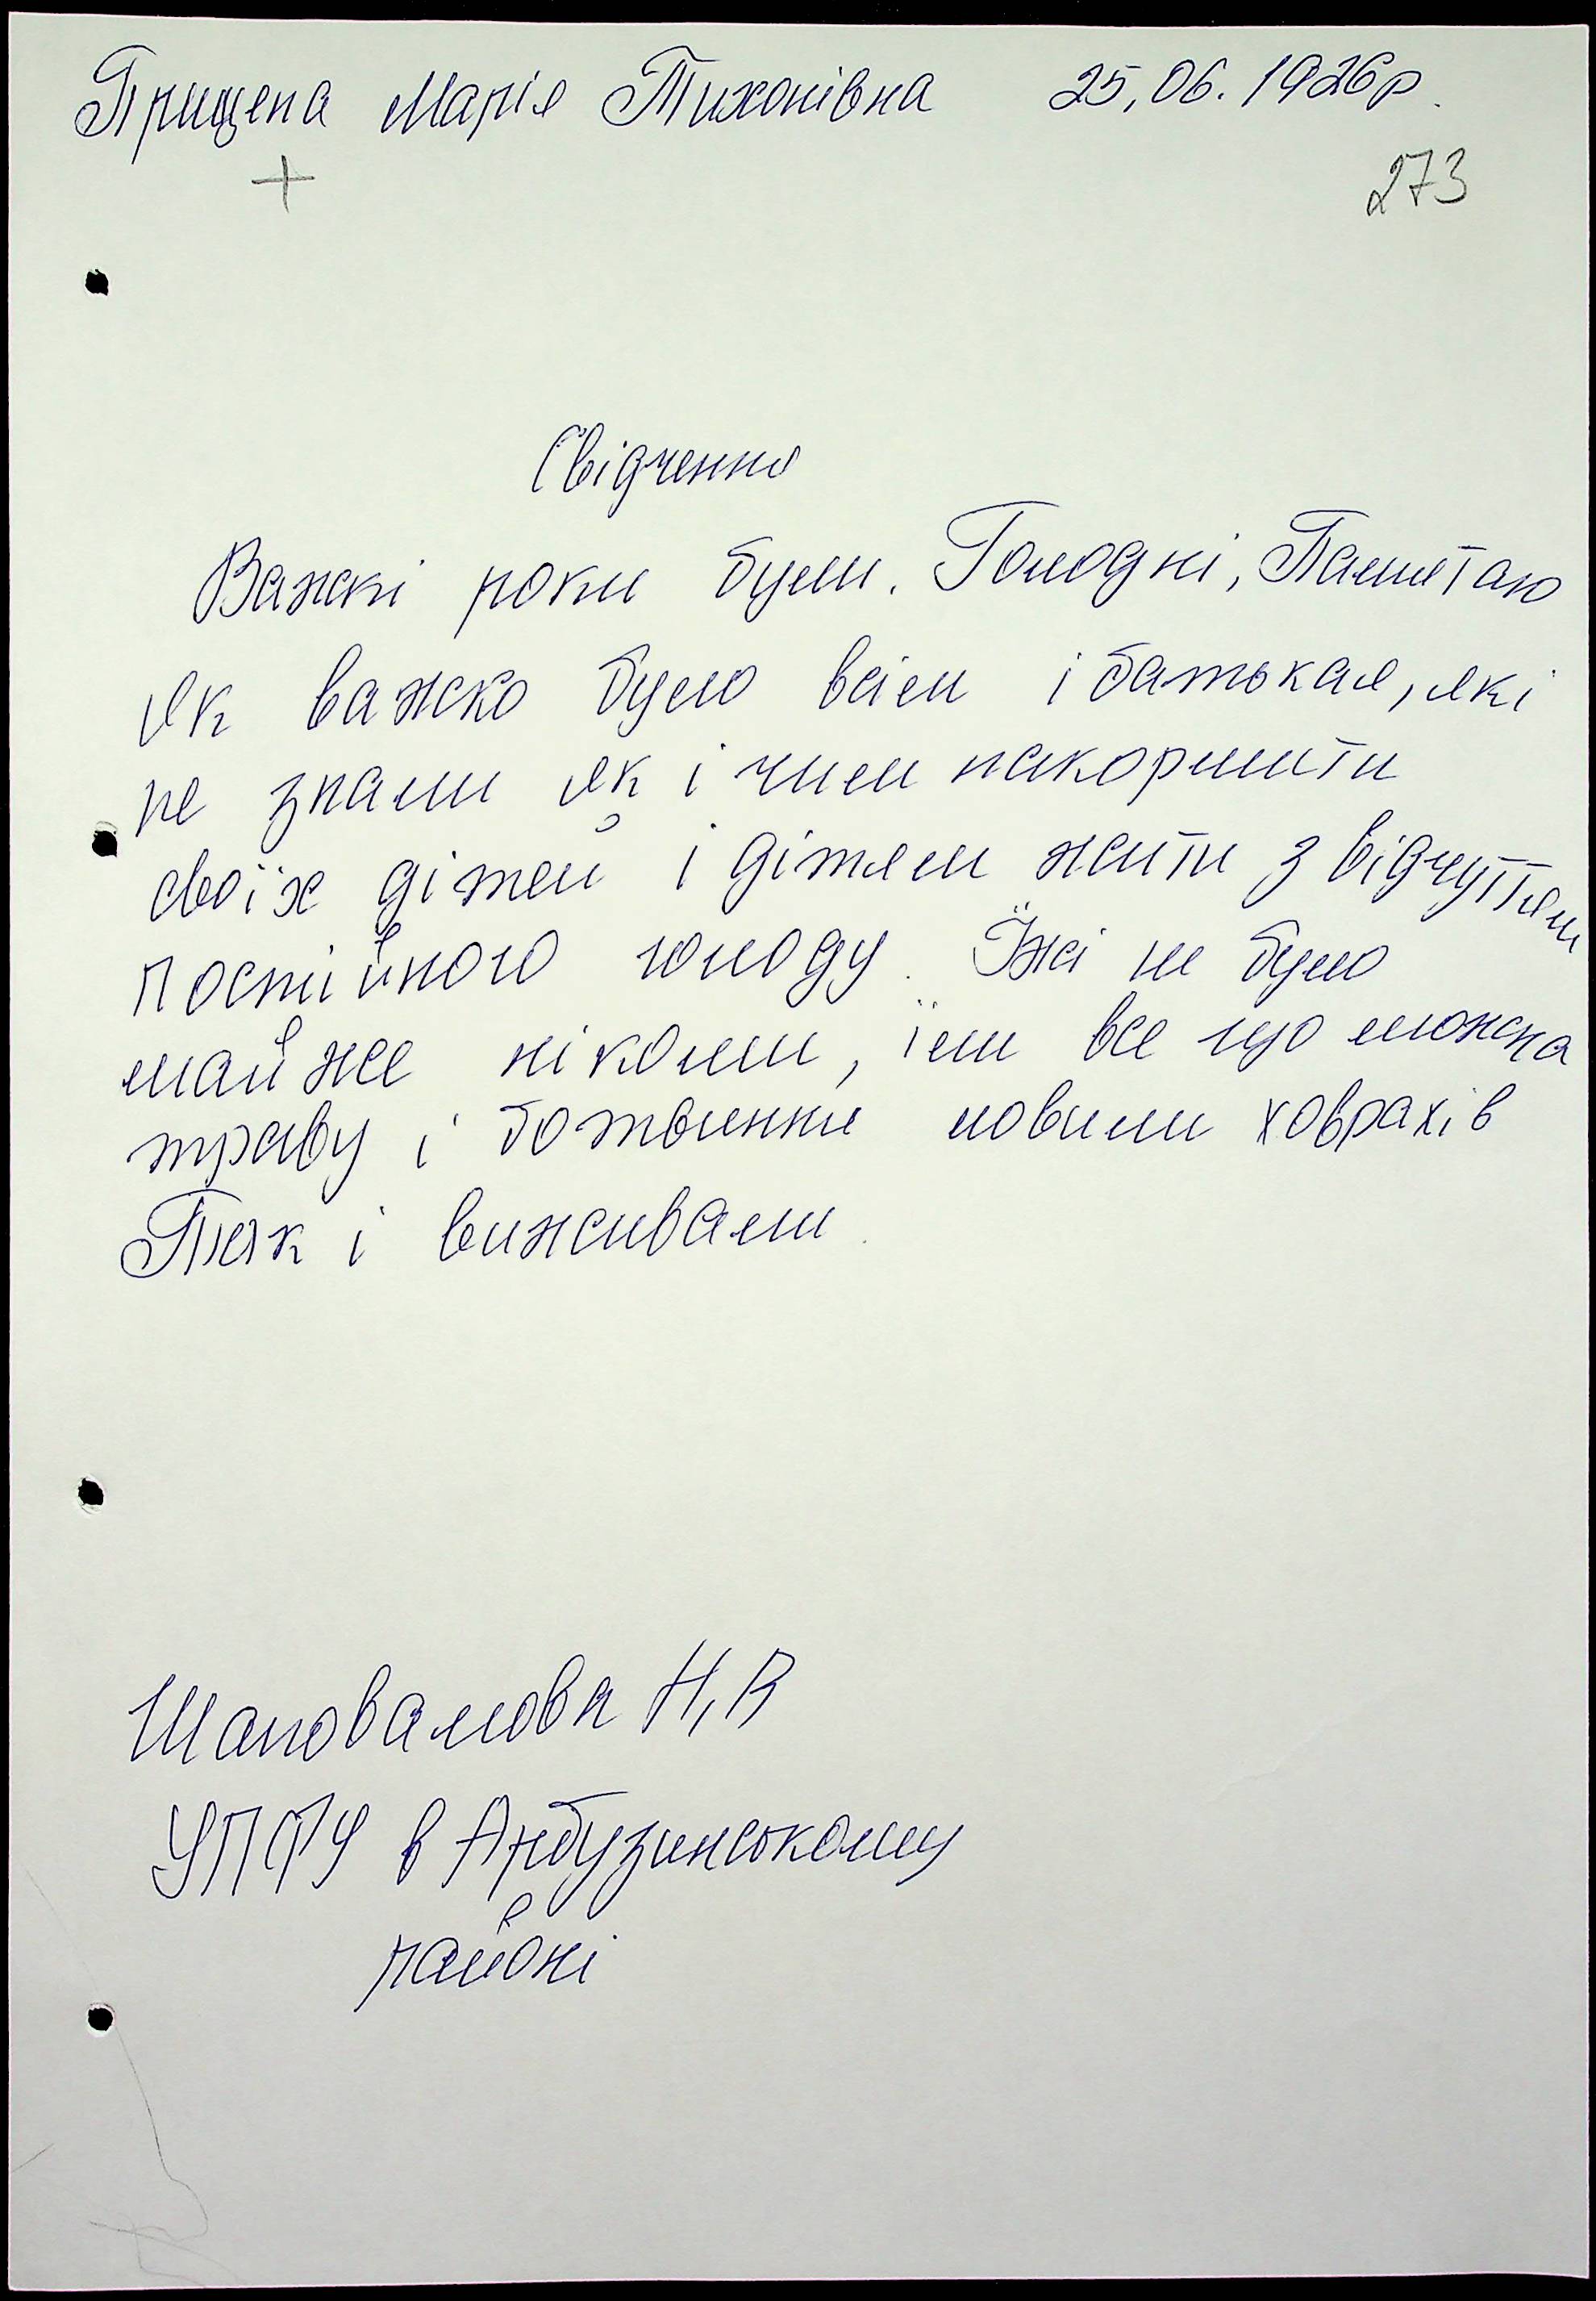 Прищепа Марія Тихонівна 25.06.1926р.
+ 273
Свідчення
Важкі роки були. Голодні, Памятаю
як важко було всім і батькам, які
не знали як і чим накормити
своїх дітей і дітям жити з відчуттям
постійного голоду. Їжі не було
майже ніколи, їли все що можна
траву і ботвиння ловили ховрахів
Так і виживали.
Шаповалова Н.В
УПФУ в Арбузинському
районі